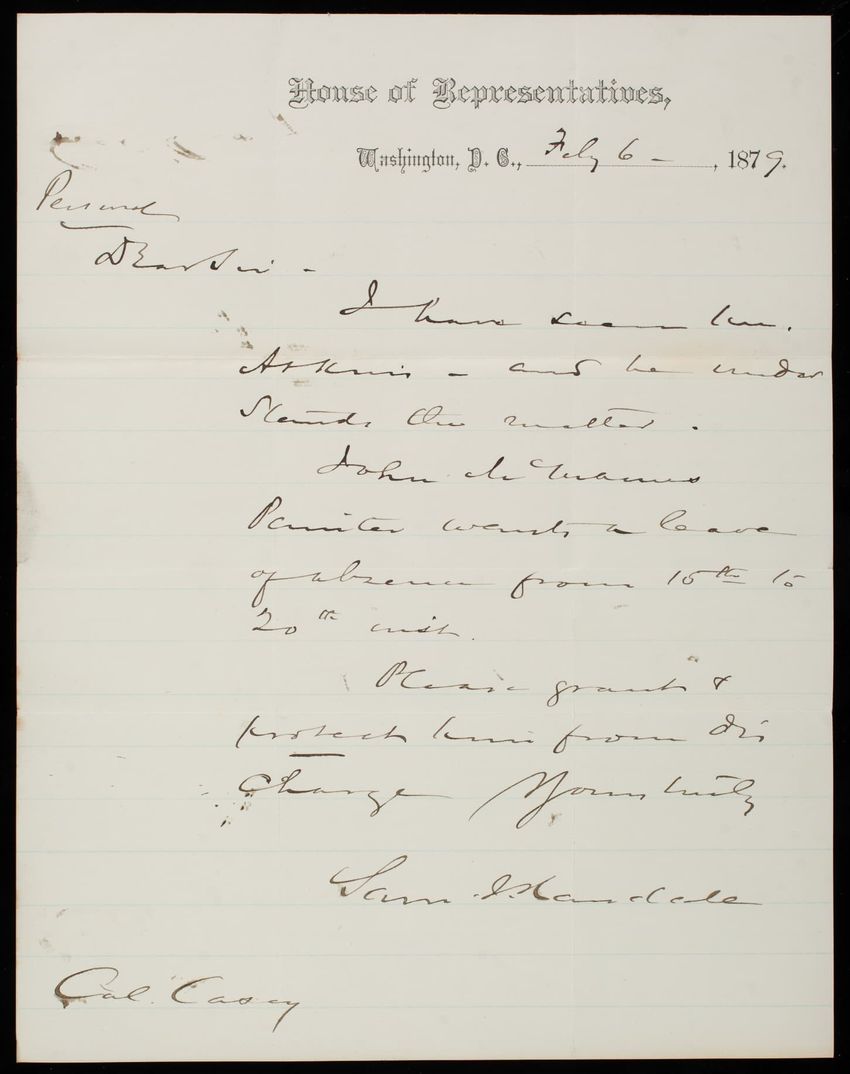 House of Representatives,
Washington, D. C., Feby 6 - , 1879.
Personal
Dear Sir -
I have seen him.
- and he under
stands the matter.
John McManus
Painter wants a leave
of absence from 15th to
20th inst.
Please grant &
protect him from dis
charge Yours truly
Sam J Randall
Col. Casey